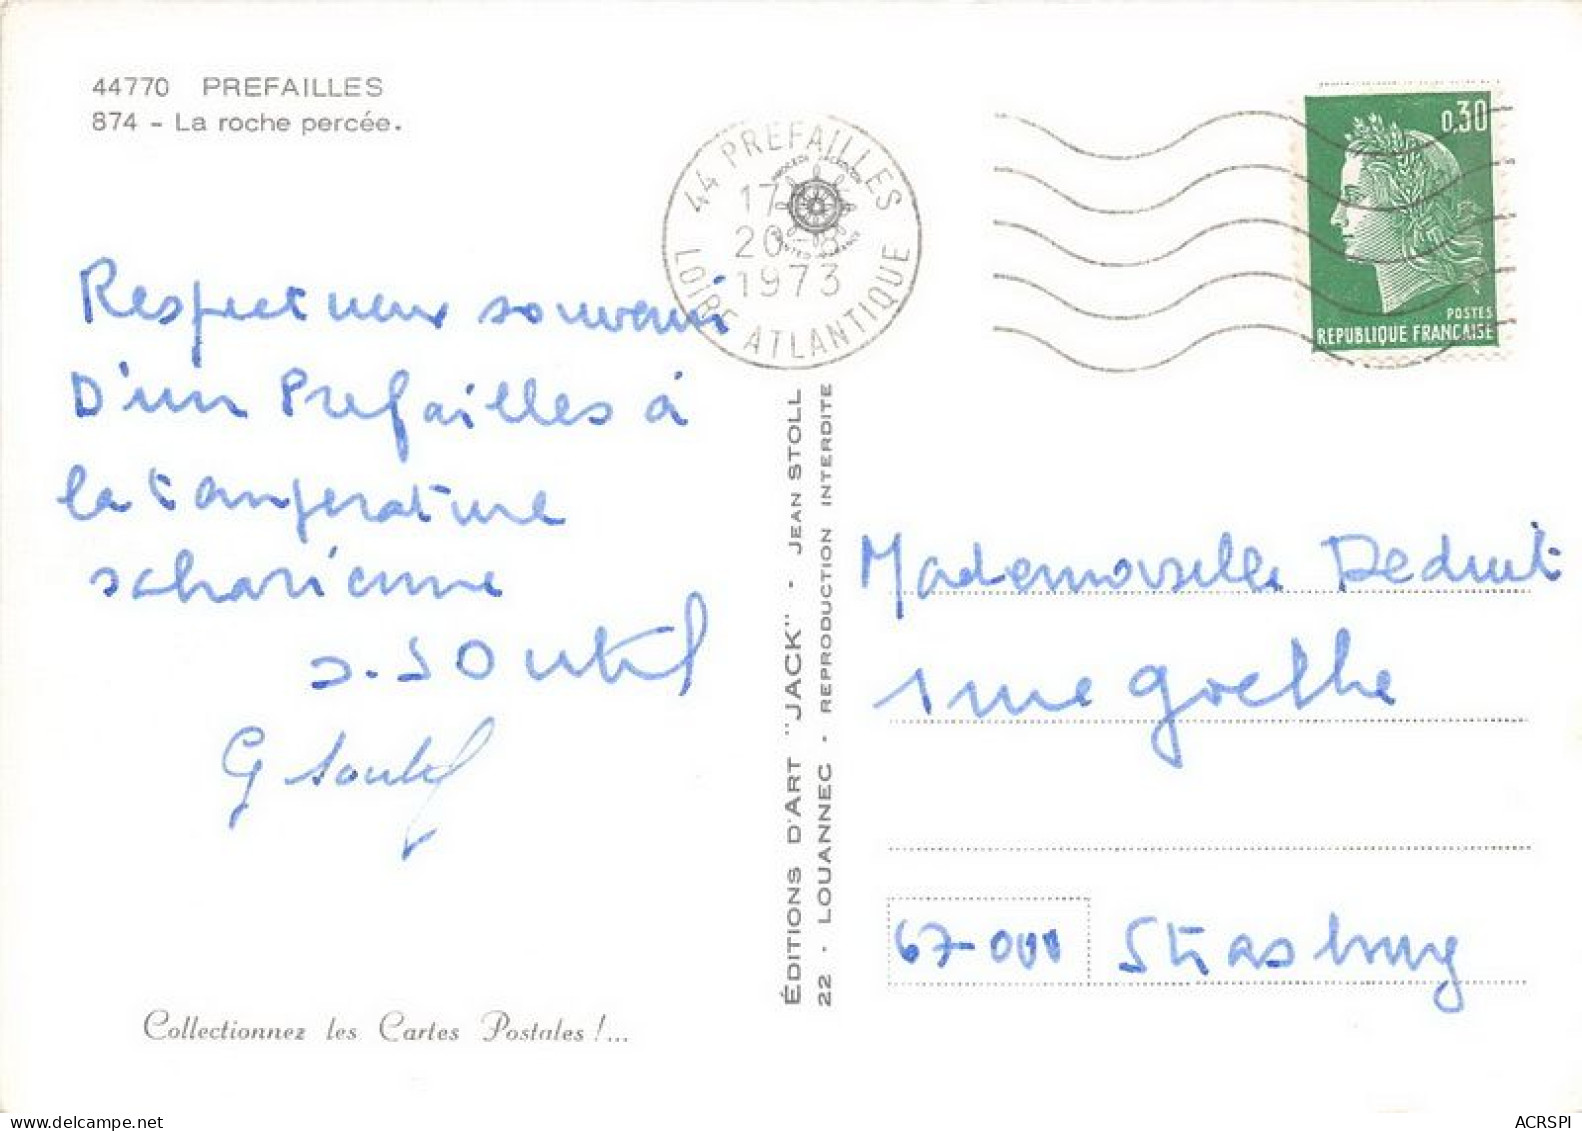 44770 PREFAILLES
874 - La roche percée.
44 PREFAILLES
17
20-8
1973
LOIRE ATLANTIQUE
0,30
POSTES
REPUBLIQUE FRANÇAISE
Respectueux souvenir
D'un Prefailles à
la température
saharienne
S. Soutif
G Soutif
ÉDITIONS D'ART "JACK" - JEAN STOLL
22 - LOUANNEC - REPRODUCTION INTERDITE
Mademoiselle
1 rue Goethe
67-000 Strasbourg
Collectionnez les Cartes Postales !...
ACRSPI